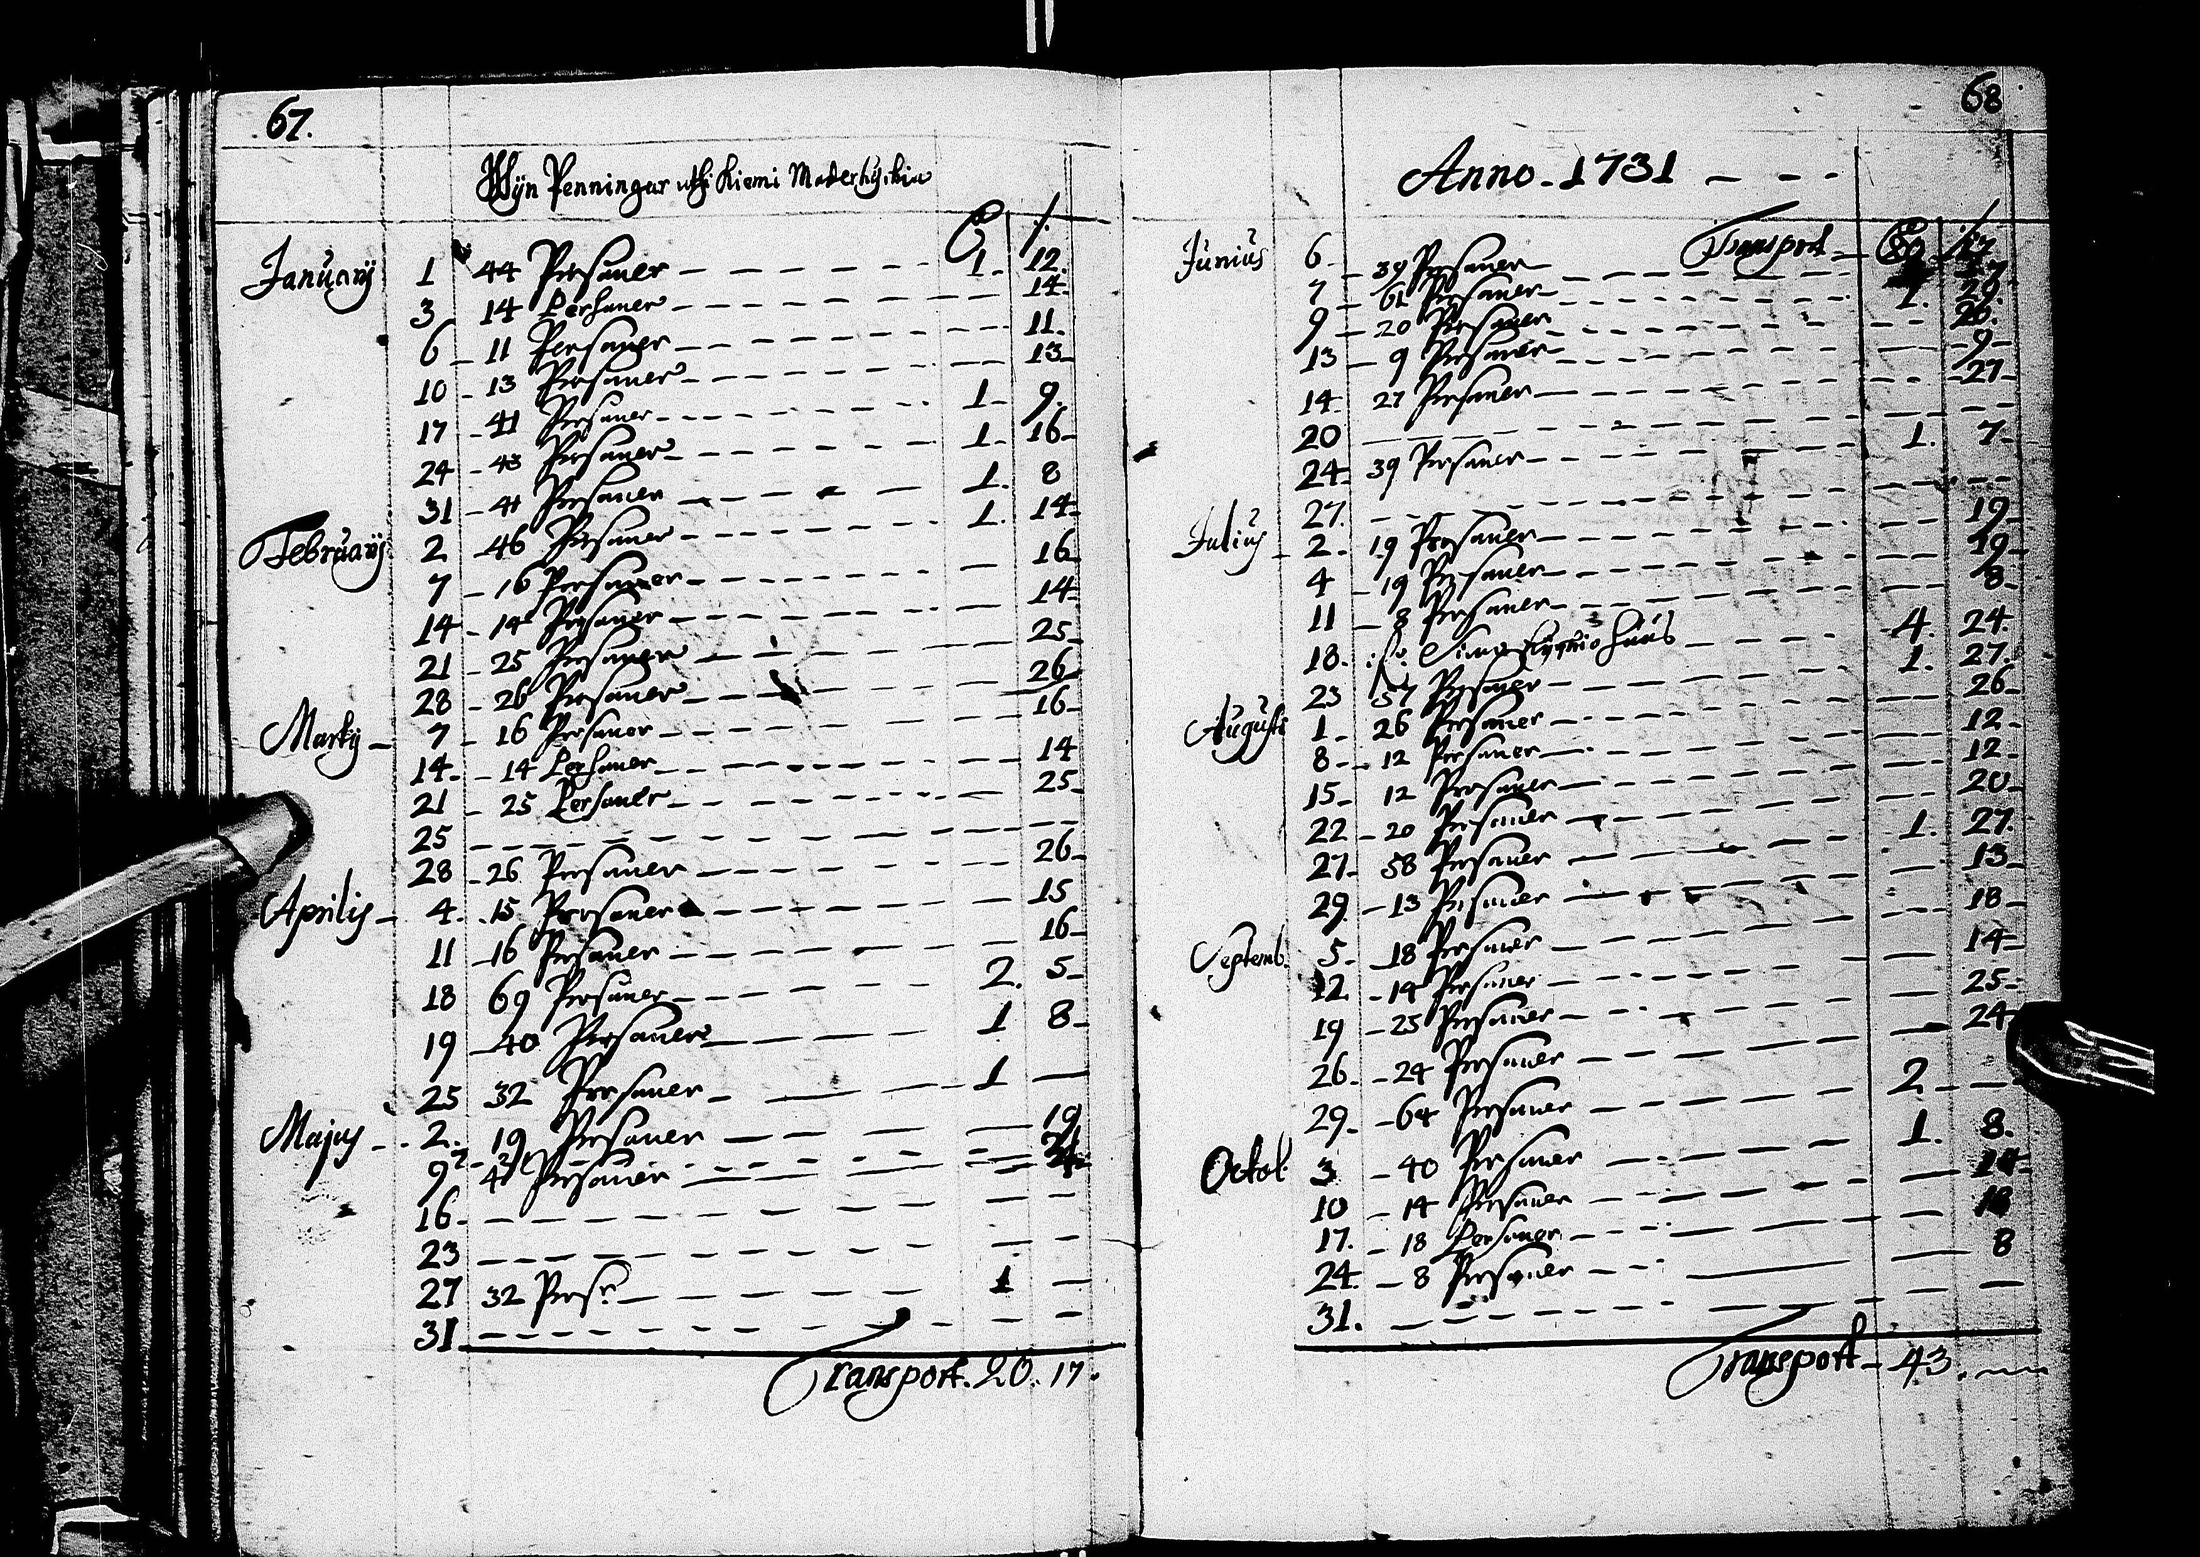 67.
Wÿn Penningar uthi Kiemi Moderkÿrkia
Januarÿ 1 44 Persåner 1. 12.
3 14 Persåner 14.
6 11 Persåner 11.
10 13 Persåner 13
17 41 Persåner 1 9.
24 43 Persåner 1. 16
31 41 Persåner 1. 8
Februarÿ 2 46 Persåner 1. 14
7 16 Persåner 16
14 14 Persåner 14
21 25 Persåner 25
28 26 Persåner 26
Martÿ 7 16 Persåner 16
14 14 Persåner 14
21 25 Persåner 25
25
28 26 Persåner 26
Aprilis 4. 15 Persåner 15
11 16 Persåner 16
18 69 Persåner 2. 5
19 40 Persåner 1 8
25 32 Persåner 1
Majus 2. 19 Persåner 19
9 Persåner
16
23
27 32 Persr 1
31
Transport. 20. 17.
68
Anno 1731
Transport
Junius 6 39 Persåner
7 61 Persåner 1. 29
9 20 Persåner 20.
13 9 Persåner 9
14 27 Persåner 27
20
24 39 Persåner 1. 7
27.
Julius 2 19 Persåner 19
4 19 Persåner 19
11 8 Persåner 8
18. Simo 4. 24.
23 57 Persåner 1. 27.
Augusti 1 26 Persåner 26
8 12 Persåner 12
15 12 Persåner 12
22 20 Persåner 20
27 58 Persåner 1. 27.
29. 13 Persåner 13
Septemb. 5 18 Persåner 18
12. 14 Persåner 14
19 25 Persåner 25
26 24 Persåner 24
29. 64 Persåner 2
Octob 3 40 Persåner 1. 8.
10 14 Persåner 14
17. 18 Persåner 18
24. 8 Persåner 8
31.
Transport 43.